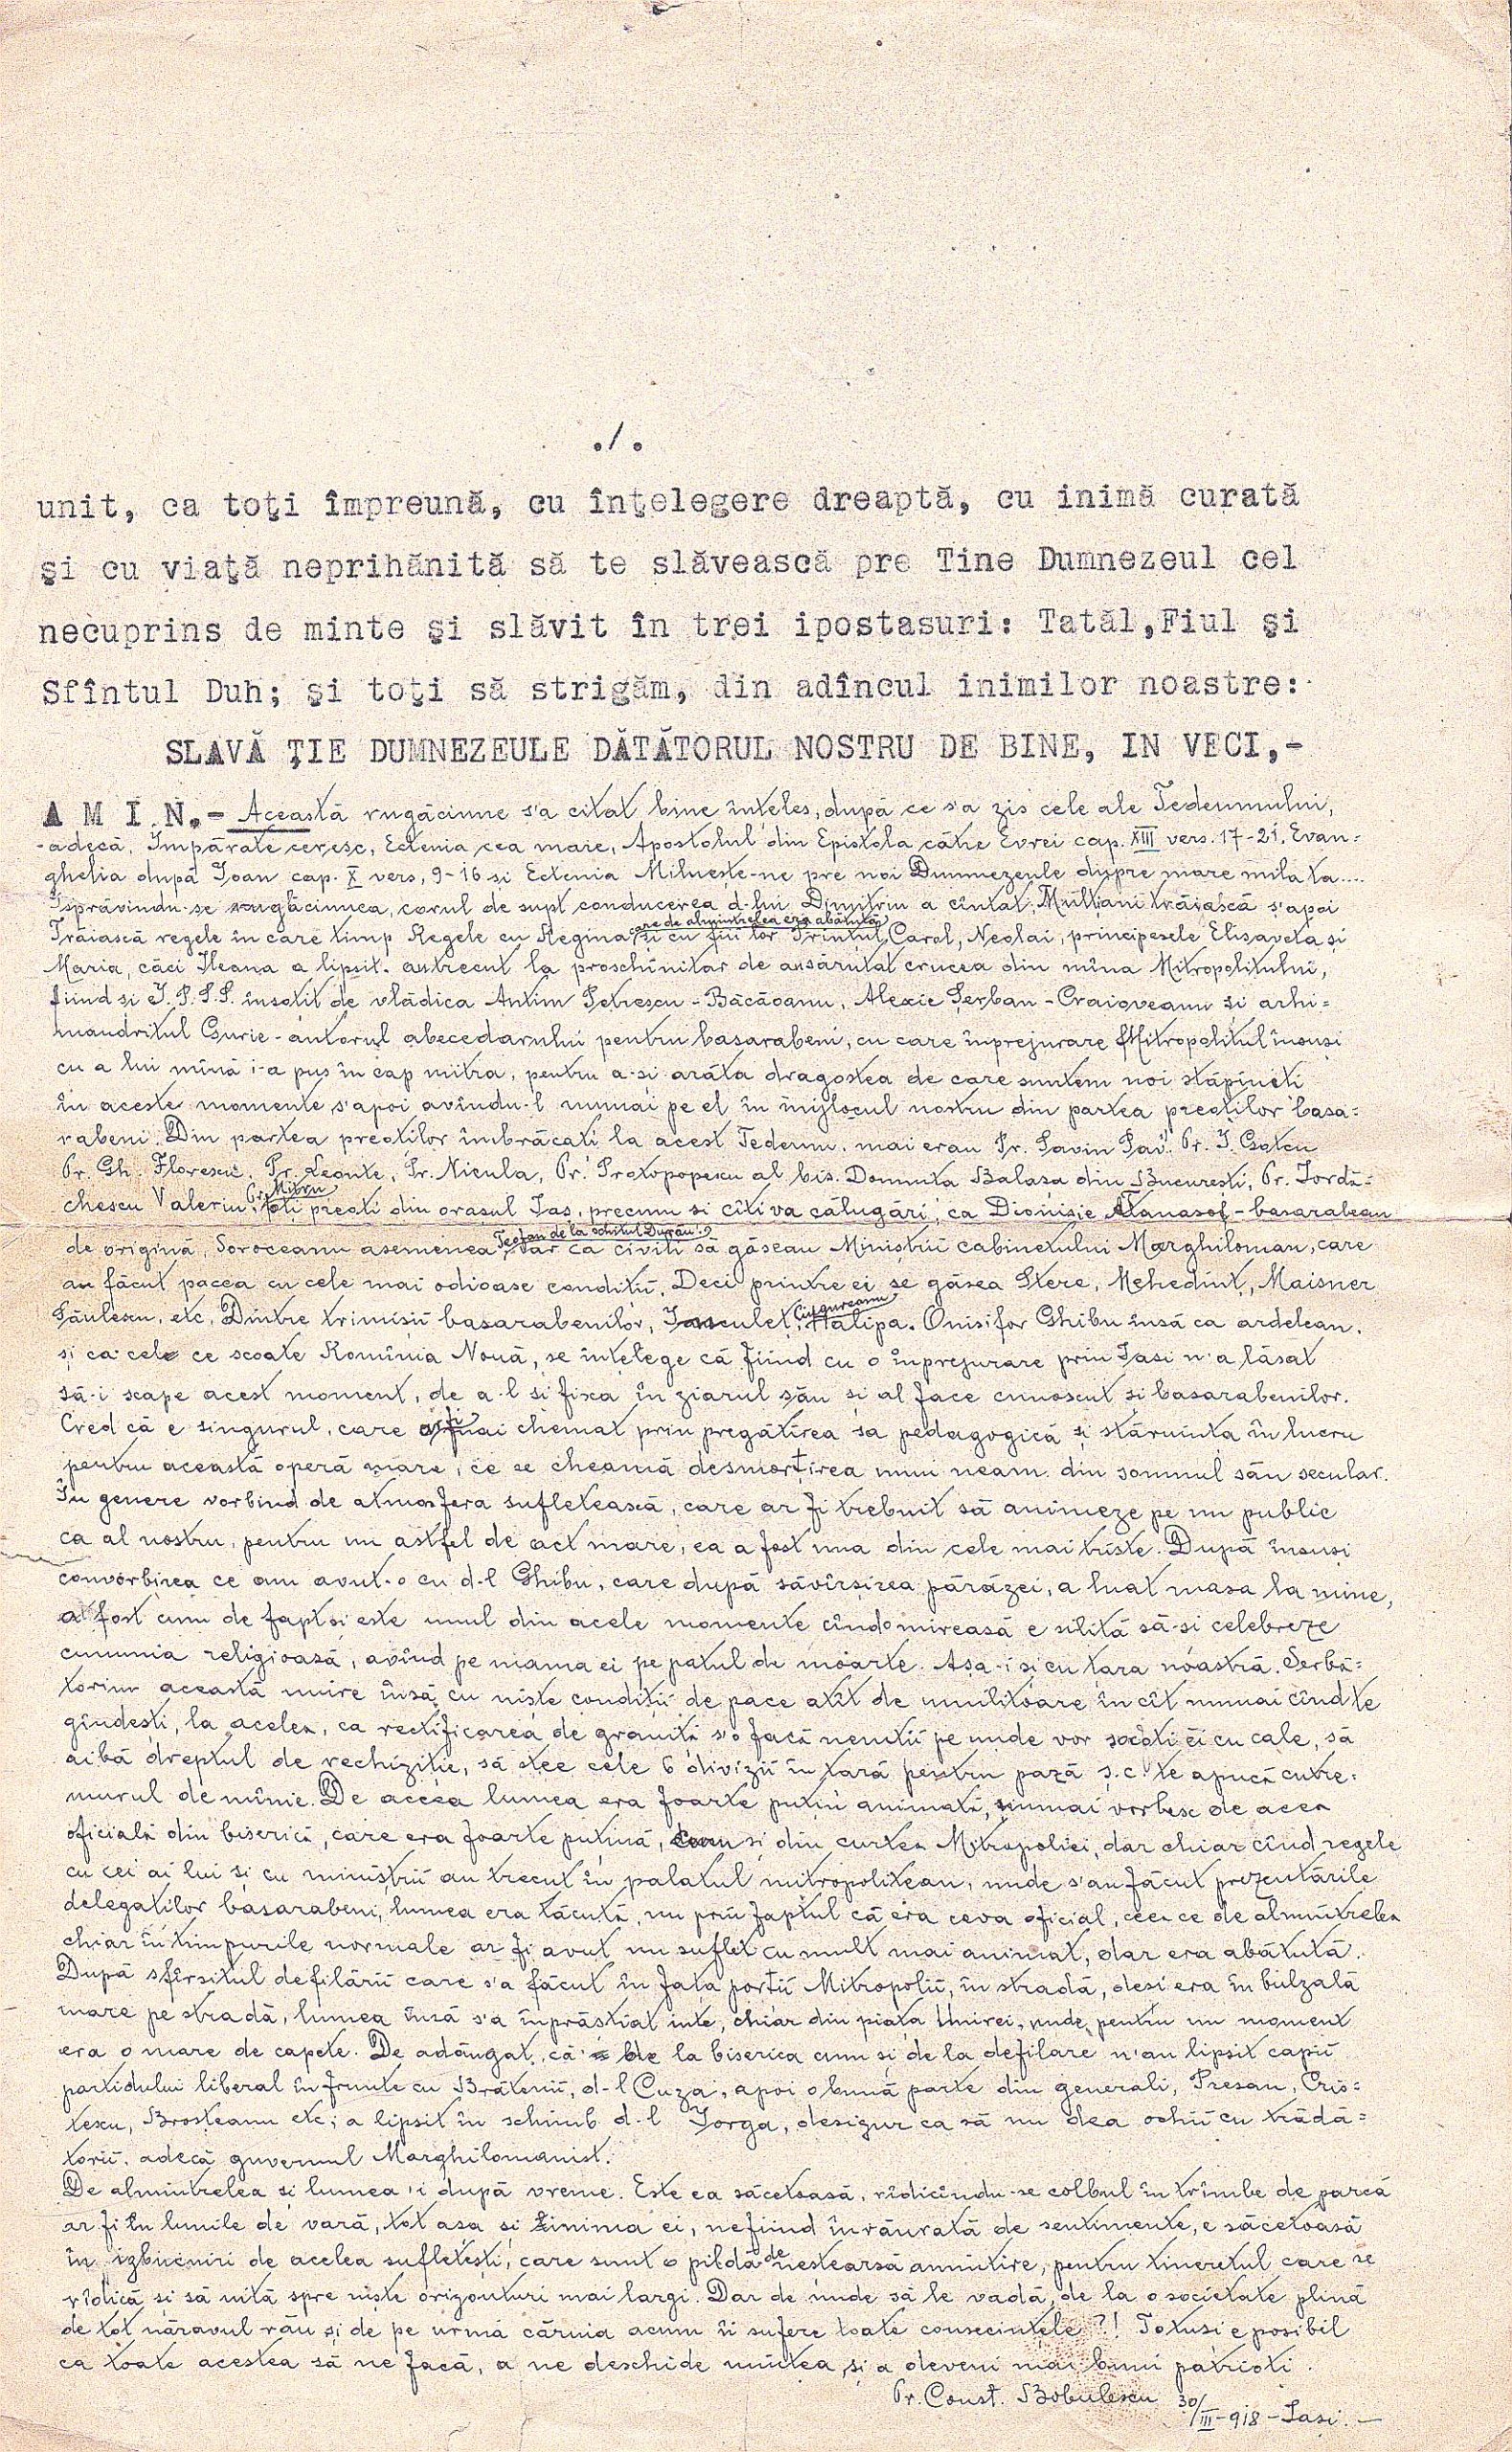 ./.
unit, ca toţi împreună, cu înţelegere dreaptă, cu inimă curată
şi cu viaţă neprihănită să te slăvească pre Tine Dumnezeul cel
necuprins de minte şi slăvit în trei ipostasuri: Tatăl,Fiul şi
Sfîntul Duh; şi toţi să strigăm, din adîncul inimilor noastre:
SLAVĂ ŢIE DUMNEZEULE DĂTĂTORUL NOSTRU DE BINE, IN VECI,-
A M I N.- Această rugăciune s'a citat bine înteles, după ce s'a zis cele ale Tedeumului,
-adecă, Împărate ceresc, Ectenia cea mare, Apostolul din Epistola cătie Evrei cap. XIII vers. 17-21. Evan=
ghelia după Ioan cap. X vers, 9-16 si Ectenia Milueste-ne pre noi Dumnezeule dupre mare mila ta....
Isprăvindu-se rugăciunea, corul de supt conducerea d-lui Dimitriu a cîntat, Multiani trăiască s'apoi
care de almintrelea era abătută
Trăiască regele în care timp Regele cu Regina, si cu fiii lor Printul Carol, Neolai, principesele Elisaveta si
Maria, căci Ileana a lipsit. au trecut la proschinitar de au sărutat crucea din mîna Mitropolitului,
fiind si I.P.S.S. însotit de vlădica Antim Petrescu - Băcăoanu, Alexie Şerban - Craioveanu si arhi=
mandritul Gurie - autorul abecedarului pentru basarabeni, cu care înprejurare Mitropolitul însusi
cu a lui mînă i-a pus în cap mitra, pentru a-si arăta dragostea de care suntem noi stăpîniti
în aceste momente s'apoi avîndu-l numai pe el în mijlocul nostru din partea preotilor basa=
rabeni. Din partea preotilor îmbrăcati la acest Tedeum, mai erau Pr. Savin Pr. I. Gotcu
Pr. Gh. Florescu, Pr. Leonte, Pr. Nicula, Pr. Protopopescu al bis. Domnita Balasa din Bucuresti, Pr. Iordă-
Pr. Mitru
chescu Valeriu, toti preoti din orasul Ias, precum si cîtiva călugări, ca Dionisie Atanasof - basarabean
Teofan de la schitul Durău
de origină, Soroceanu asemenea, iar ca civili să găseau Ministrii cabinetului Marghiloman, care
au făcut pacea cu cele mai odioase conditii. Deci printre ei se găsea Stere, Mehedint, Maisner
Ciugureanu
Săulescu, etc. Dintre trimisii basarabenilor, Inculet, Halipa. Onisifor Ghibu însă ca ardelean,
și ca cele ce scoate Romînia Nouă, se întelege că fiind cu o înprejurare prin Iasi n'a lăsat
să-i scape acest moment, de a-l si fixa în ziarul său si al face cunoscut si basarabenilor.
Cred că e singurul, care ar fi mai chemat prin pregătirea sa pedagogică si stăruinta în lucru
pentru această operă mare, ce se cheamă desmorțirea unui neam din somnul său secular.
In genere vorbind de atmosfera sufletească, care ar fi trebuit să animeze pe un public
ca al nostru, pentru un astfel de act mare, ea a fost una din cele mai triste. După însusi
convorbirea ce am avut-o cu d-l Ghibu, care după săvîrsirea părăzei, a luat masa la mine,
a fost cum de fapt si este unul din acele momente cînd o mireasă e silită să-si celebreze
cununia religioasă, avînd pe mama ei pe patul de moarte. Asa-i si cu tara noastră. Serbă=
torim această unire însă cu niste conditii de pace atît de umilitoare în cît numai cînd te
gîndesti, la acelea, ca rectificarea de granită s'o facă nemtii pe unde vor socoti ei cu cale, să
aibă dreptul de rechizitie, să stee cele 6 divizii în tară pentru pază s.c. te apucă cutre=
murul de mînie. De aceea lumea era foarte putin animată, numai vorbesc de acea
oficială din biserică, care era foarte putină, cum si din curtea Mitropoliei, dar chiar cînd regele
cu cei ai lui si cu ministrii au trecut în palatul mitropolitean, unde s'au făcut prezentările
delegatilor basarabeni, lumea era tăcută, nu prin faptul că era ceva oficial, ceea ce de almintrelea
chiar în timpurile normale ar fi avut un suflet cu mult mai animat, dar era abătută.
După sfîrsitul defilării care s'a făcut în fata porții Mitropolii, în stradă, desi era în bulzală
mare pe stradă, lumea însă s'a înprăstiat iute, chiar din piata Unirei, unde pentru un moment
era o mare de capete. De adăugat, că de la biserica cum si de la defilare n'au lipsit capii
partidului liberal în frunte cu Brătenii, d-l Cuza, apoi o bună parte din generali, Presan, Cris=
tescu, Brosteanu etc; a lipsit în schimb d-l Iorga, desigur ca să nu dea ochii cu trădă=
torii, adecă guvernul Marghilomanist.
De almintrelea si lumea 'i după vreme. Este ea săcetoasă, rîdicîndu-se colbul în trîmbe de parcă
ar fi în lunile de vară, tot asa si inima ei, nefiind înrăurată de sentimente, e săcetoasă
în izbucniri de acelea sufletesti, care sunt o pildă de nestearsă amintire, pentru tineretul care se
rîdică si să uită spre niste orizonturi mai largi. Dar de unde să le vadă, de la o societate plină
de tot năravul rău si de pe urma căruia acum îi sufere toate consecintele?! Totusi e posibil
ca toate acestea să ne facă, a ne deschide mintea, si a deveni mai buni patrioti.
Pr. Const. Bobulescu 30/III-918 - Iasi. -